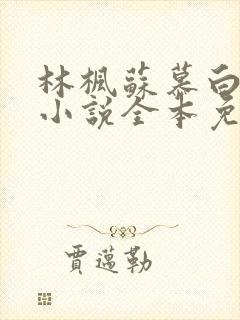 林楓蘇慕白
小說全本免
賈邁勒